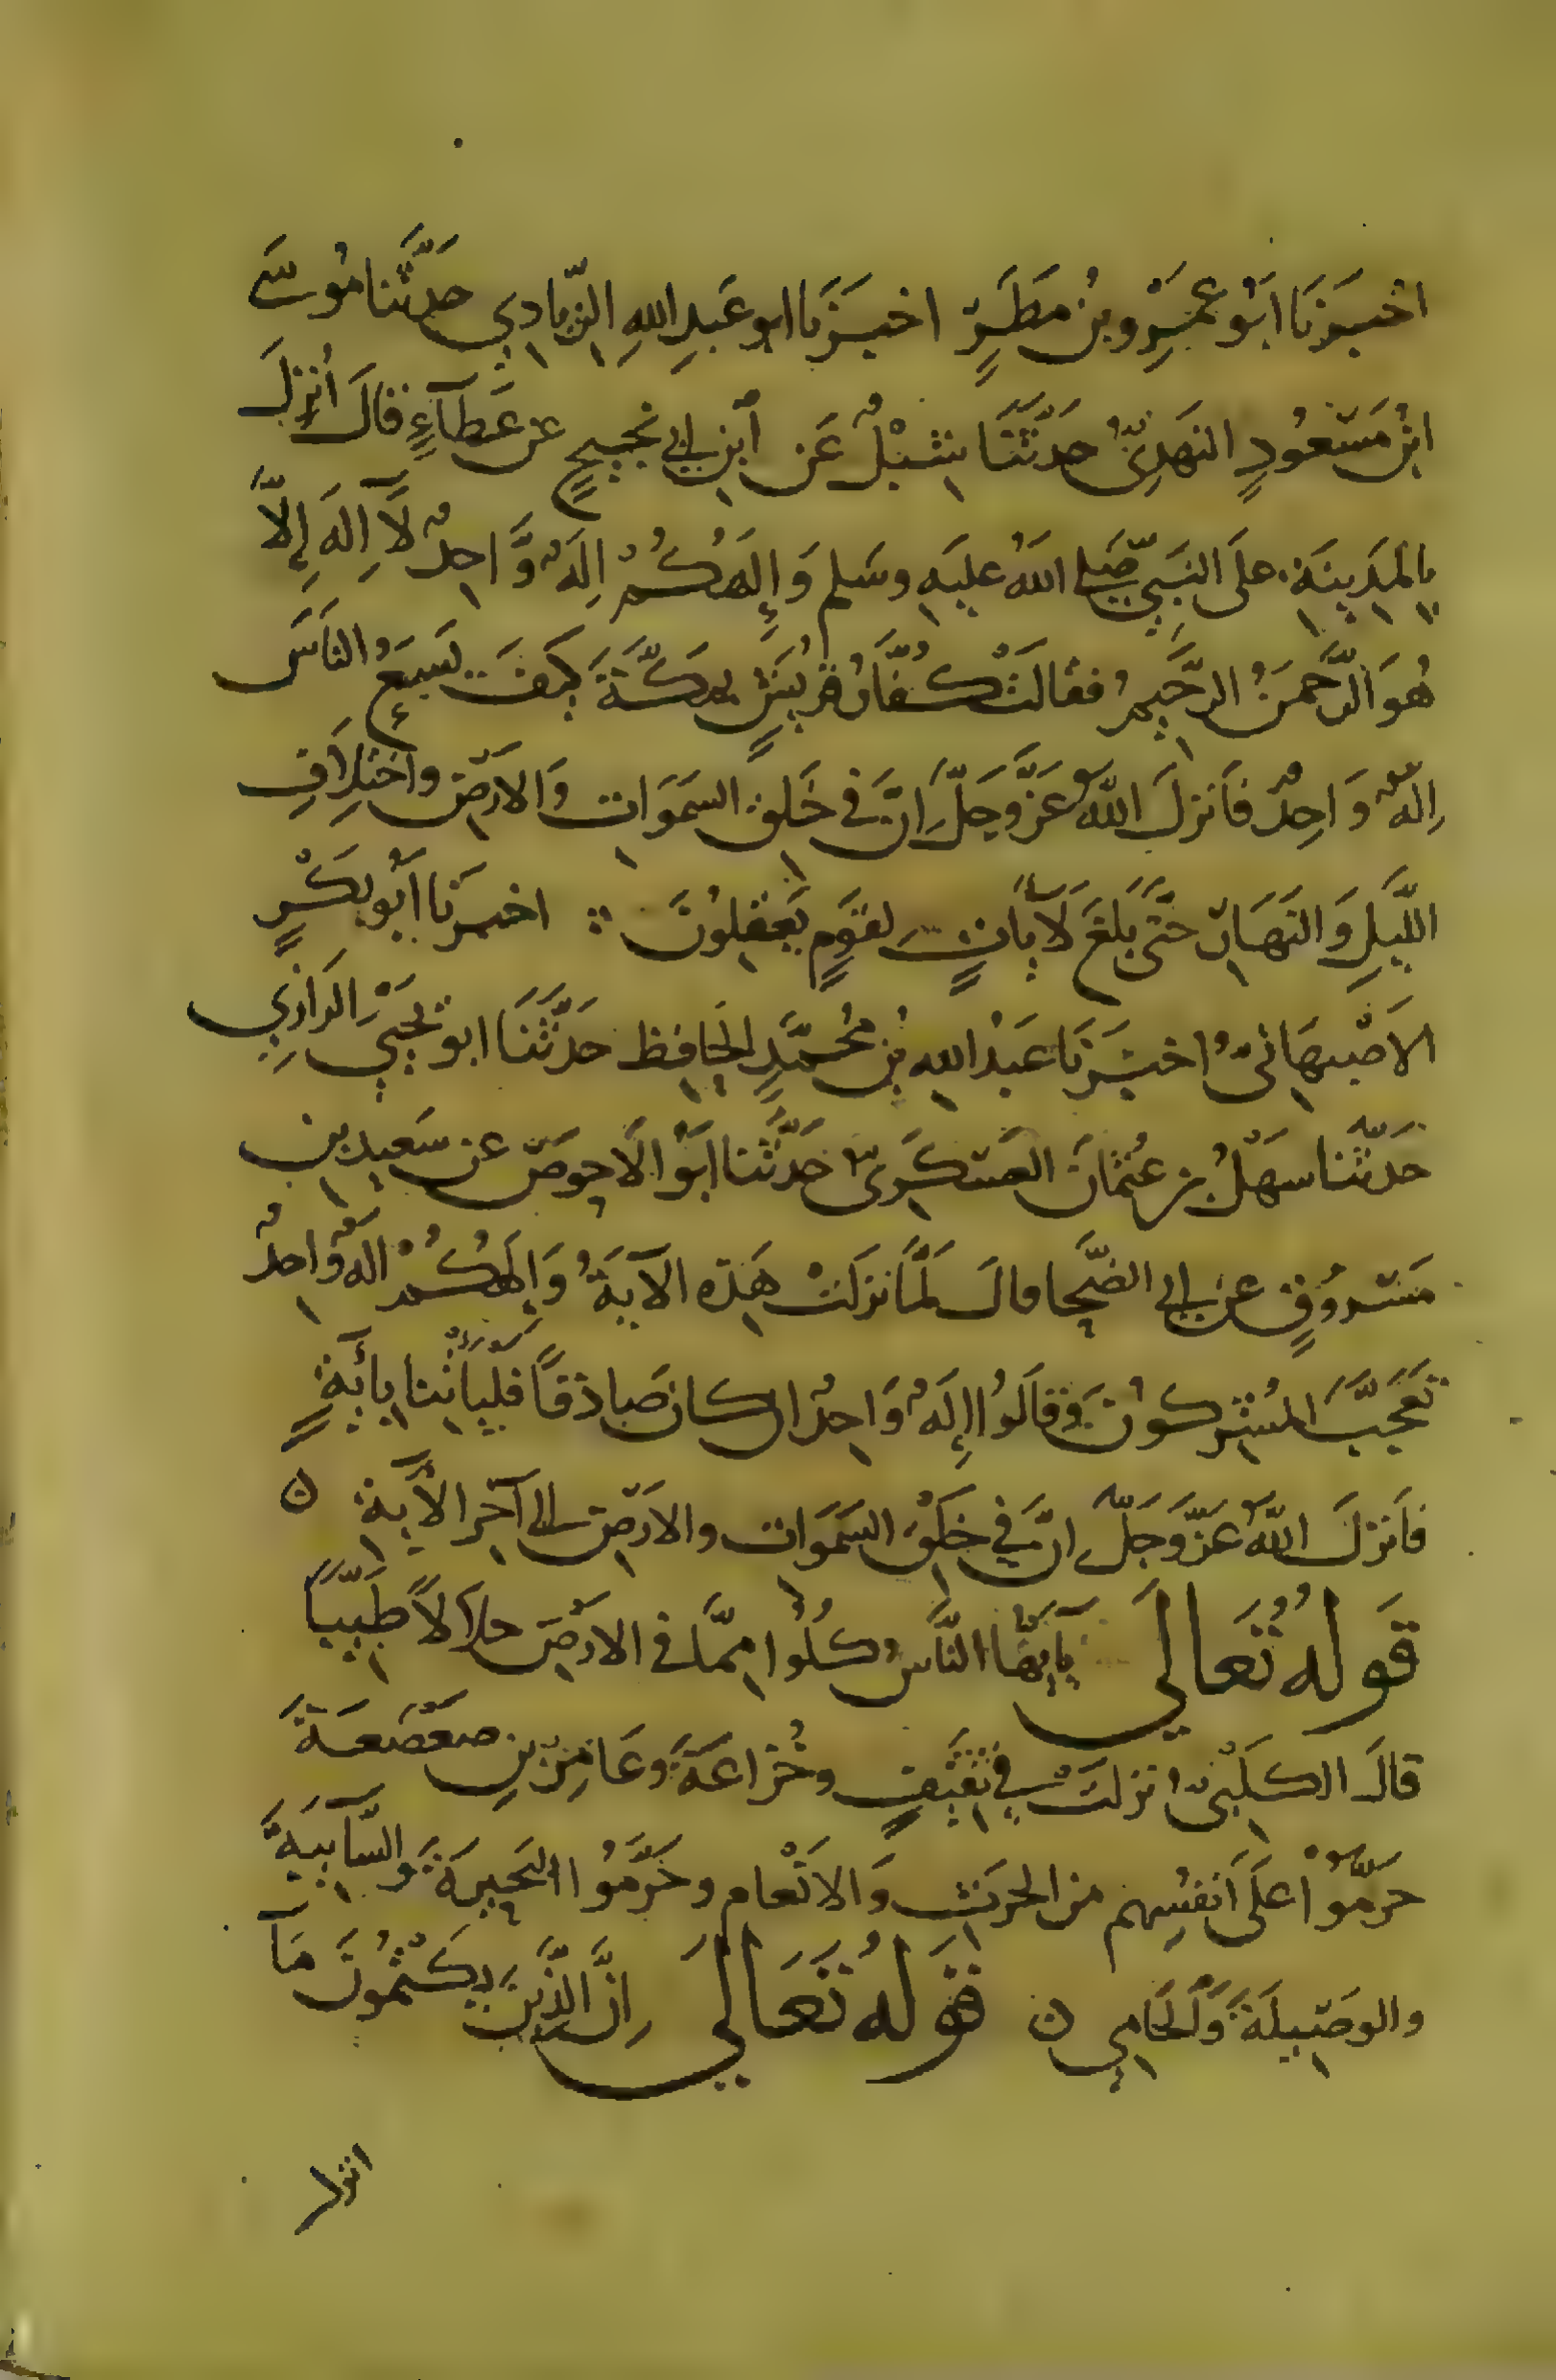 اخبرنا ابو عمرو بن مطر اخبرنا ابو عبد الله الزيادي حدثنا موسى
ابن مسعود النهدي حدثنا شبل عن ابن ابي نجيح عن عطاء قال انزل
بالمدينة على النبي صلى الله عليه وسلم وإلهكم إله واحد لا إله إلا
هو الرحمن الرحيم فقالت كفار قريش بمكة كيف يسع الناس
إله واحد فانزل الله عز وجل ان في خلق السموات والارض واختلاف
الليل والنهار حتى بلغ لآيات لقوم يعقلون اخبرنا أبو بكر
الاصبهاني اخبرنا عبد الله بن محمد الحافظ حدثنا ابو يحيى الرازي
حدثنا سهل بن عثمان العسكري حدثنا ابو الاحوص عن سعيد بن
مسروق عن ابي الضحا قال لما نزلت هذه الآية وإلهكم اله واحد
تعجب المشركون وقالوا إله واحد ان كان صادقا فليأتنا بآية
فانزل الله عز وجل ان في خلق السموات والارض الى آخر الآية ٥
قوله تعالى يا ايها الناس كلوا مما في الارض حلالا طيبا
قال الكلبي نزلت في ثقيف وخزاعة وعامر بن صعصعة
حرموا على انفسهم من الحرث والانعام وحرموا البحيرة والسآيبة
والوصيلة والحامي ٥ قوله تعالى ان الذين يكتمون مآ
انزل